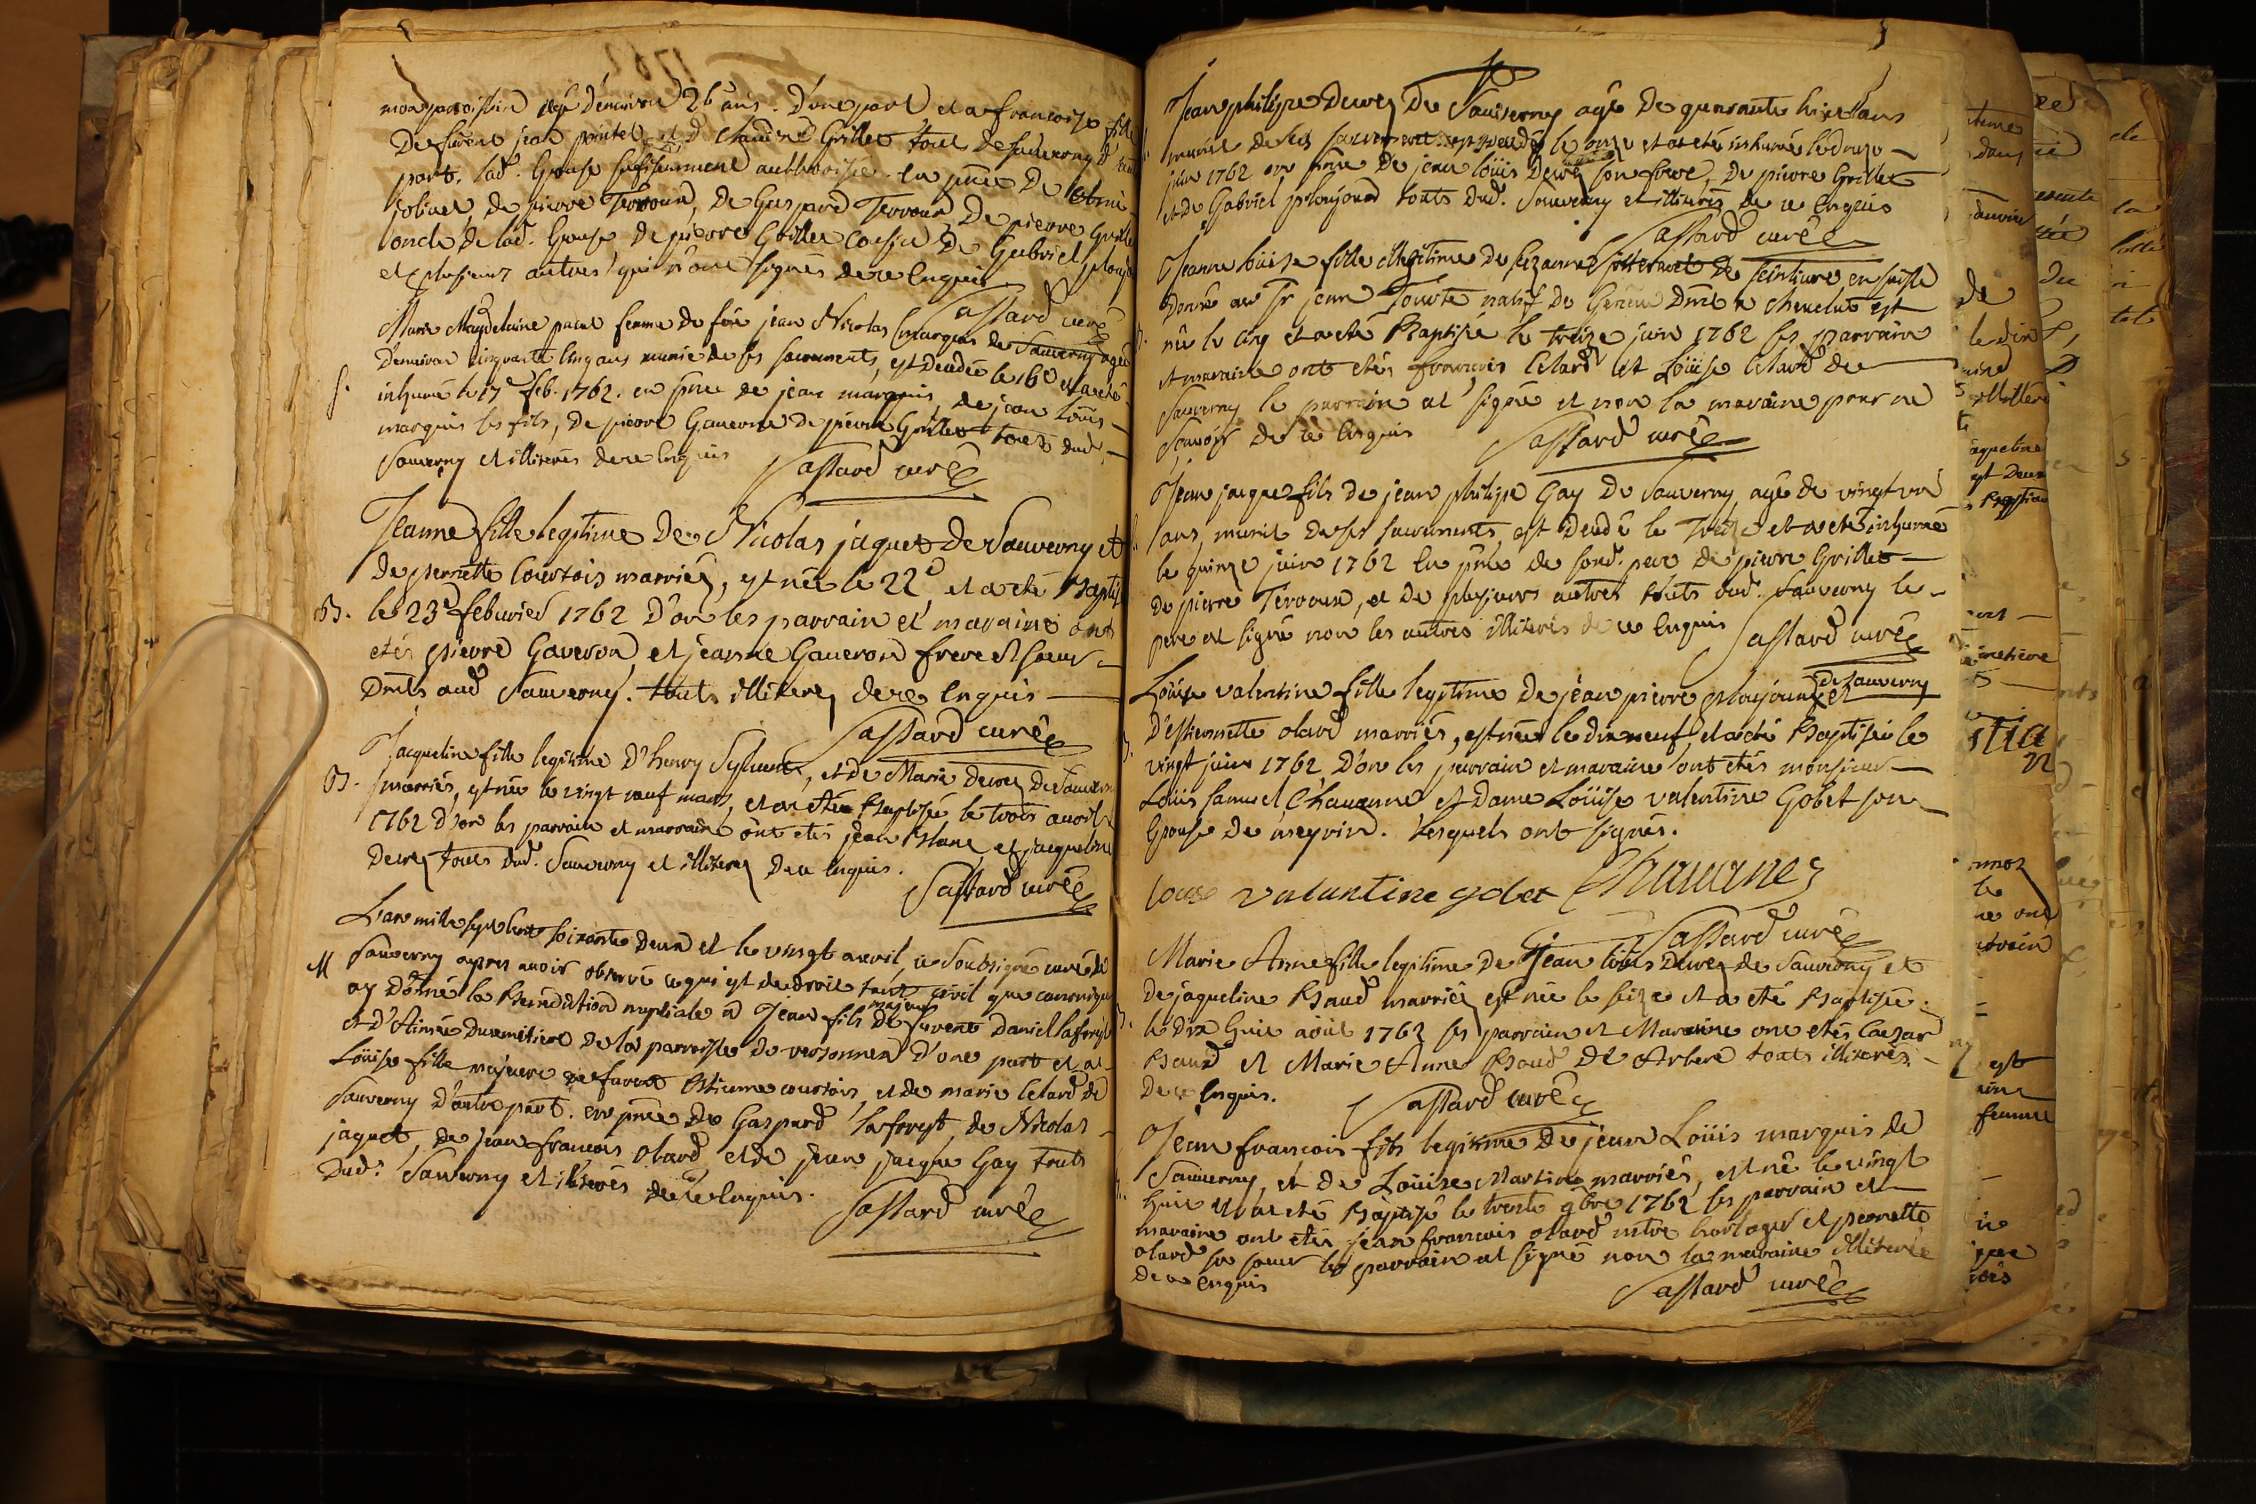 mon paroissien agé d'environ 26 ans. d'une part et a francoise fille
De furent jean pointet et d Claudine Grillet tous de sauverny d'autre
part. lad. Epouse sufisamment authorisée. en pñce De
jolivet, de pierre Terroux, de Gaspard Terroux De pierre Grillet
oncle de lad. Epouse de pierre Grillet cousin & De Gabriel plouj
et plusieurs autres qui n'ont signés de ce Enquis
Sassard curé
Marie Magdelaine pacut femme de feu jean Nicolas Marquis de Sauverny agée
D'environ cinquante cinq ans munie de ses sacrements, est decedée le 16e et a eté
S. inhumé le 17e feb. 1762. en pñce de jean marquis, de jean Loüis
marquis ses fils, de pierre Gaueron de pierre Grillet touts dud.
Sauverny et illiterés de ce Enquis Sassard curé
Jeanne fille legitime De Nicolas jaquet de Sauverny et
de pernette Courtois marriés, est née le 22e et a eté Baptisé
B. le 23e febvrier 1762 D'on les parrain et maraine ont
etés pierre Gaveron et jeanne Gaueron frere et soeur
Dmts aud Sauverny. touts illiterés de ce Enquis
Sassard curé
Jacqueline fille legitime D'henry Sylvent, et de Marie Decré De Sauverny
B. marriés, est née le vingt neuf mars, et a eté Baptisée le trois avril
1762 d'on les parrain et marraine ont etés jean Blanc et jacqueline
Decré touts dud. Sauverny et illiterés de ce Enquis.
Sassard curé
L'an mille sept Cent soixante deux et le vingt avril, je Soubsigné curé de
M Sauverny apres avoir observé ce qui est de droit tant civil que canonique
ay donné la Benediction nuptiale a Jean fils majeur de furent Daniel laforest
et d'Aimée Duremetiere de la parroisse de versonnex d'une part et a
Loüise fille majeure de furent Estienne courtois, et de marie Celard de
Sauverny d'autre part. en pñce De Gaspard laforest, de Nicolas
jaquet, de jean francois olard et de jean jacque Gay touts
Dud. Sauverny et illiterés de ce Enquis. Sassard curé
Jean philippe Decré De Sauverny agé De quarante huit ans
munit de ses sacrements est decedé le onze et a eté inhumé le douze
juin 1762 en pñce De jean loüis Decré son frere, De pierre Grillet
et de Gabriel ploujoud touts dud. Sauverny et illiterés de ce Enquis
Sassard curé
Jeanne loüise fille illegitime de Suzanne De Saintiure, ensuitte
Donné au Sr jean natif De Geneve Dmt a chevelus est
B. née le cinq et a eté Baptisé le treize juin 1762 ses parrain
et maraine ont etés francois Celard et Loüise Celard de
Sauverny le parrain at signé et non la maraine pour ne
scavoir de ce Enquis Sassard curé
Jean jacque fils de jean philippe Gay De Sauverny agé de vingt un
ans, munit de ses sacrements, est decedé le Treize et a eté inhumé
le quinze juin 1762 en pñce de sond. pere De pierre Grillet
De pierre Terroux, et De plusieurs autres touts dud. Sauverny le
pere at signé non les autres illiterés de ce Enquis Sassard curé
Loüise valentine fille legitime De jean pierre ploujoux de Sauverny et
D'estiennette olard marriés, est née le dix neuf, et a eté Baptisée le
B. vingt juin 1762, D'on les parrain et maraine ont etés monsieur
Loüis samuel Chauanne et dame Loüise valentine Gobet son
Epouse De meyrin. Lesquels ont signés.
louise valantine gobet Chauanne
Sassard curé
Marie Anne fille legitime De Jean loüis Decré de Sauverny et
de jaqueline Baud marriés est née le seize et a eté Baptisée
B. le dix huit août 1762 ses parrain et Maraine ont etés Caezar
Baud et Marie Anne Baud De Arbere touts illiterés
De ce Enquis. Sassard curé
Jean francois fils legitime De jean Loüis marquis de
Sauverny, et de Loüise Martin marriés, est né le vingt
B. huit et a eté Baptisé le trente 9bre 1762 les parrain et
maraine ont etés jean francois olard mtre horloger et pernette
olard sa soeur le parrain at signé non la maraine illiterée
de ce enquis Sassard curé